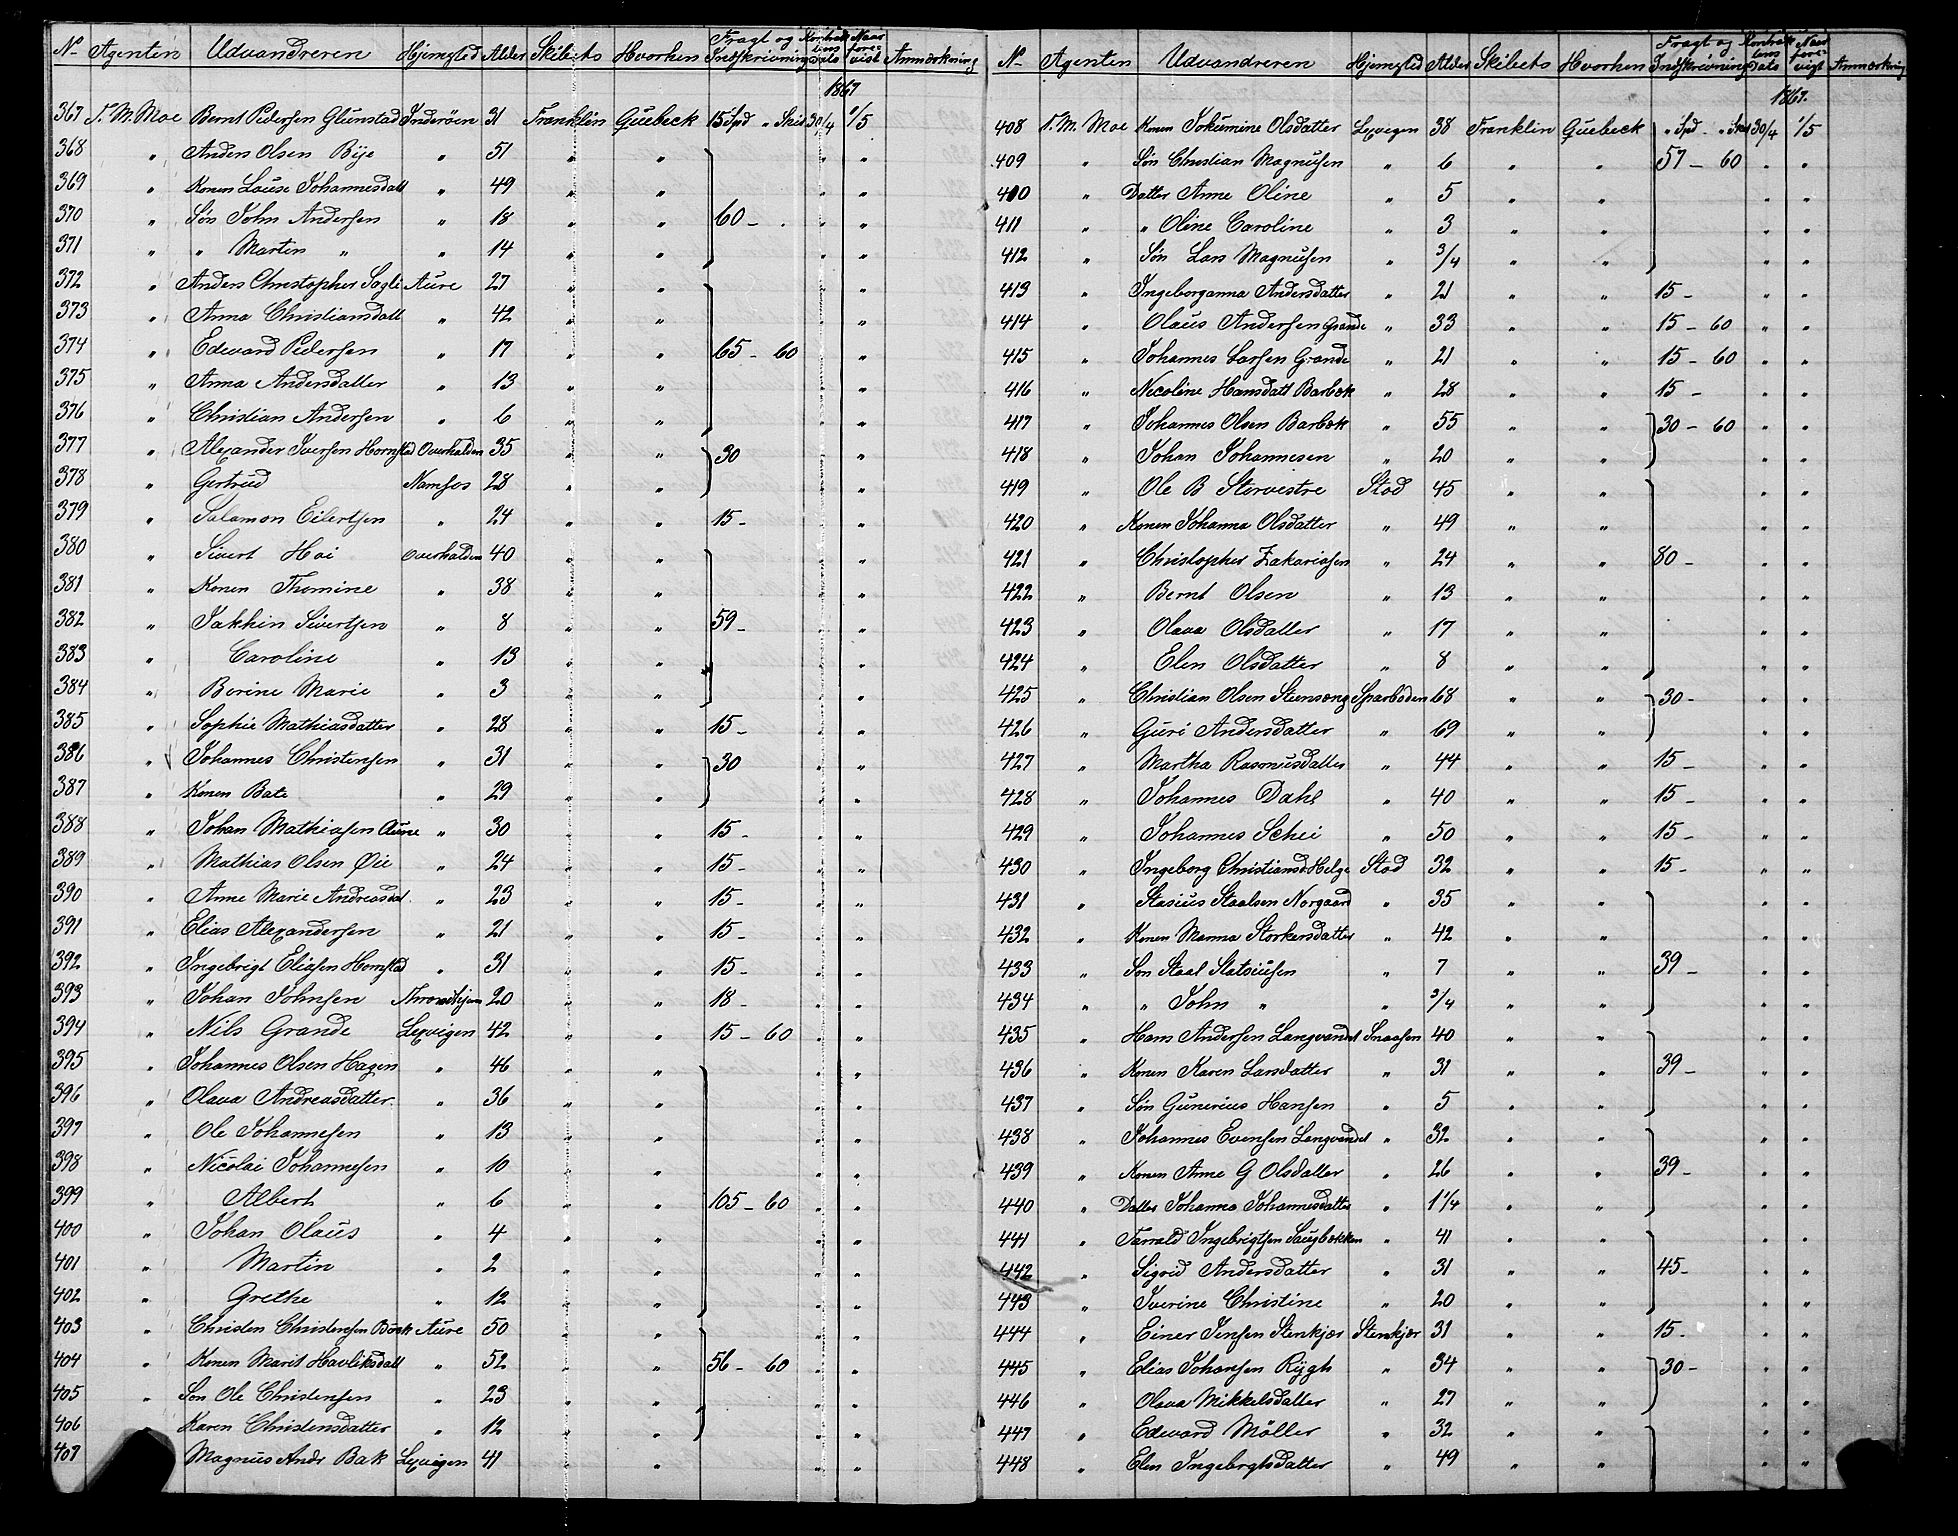 No Agenten Udvandreren Hjemsted Alder Skibets Hvorhen Fragt og Indskrivning Kontraktens Dato Naar forevist Anmærkning
1867
367 P. M. Moe Bernt Pedersen Glunstad Inderöen 31 Franklin Quebeck 15 Spd " Skil 30/4 1/5
368 " Anders Olsen Bye " 51 " " " "
369 " Konen Louise Johannesdatt " 49 " " " "
370 " Søn John Andersen " 18 " " 60 - . " "
371 " " Martin " " 14 " " " "
372 " Anders Christopher Sogli Aure 27 " " " "
373 " Anna Christiansdatt " 42 " " " "
374 " Edevard Pedersen " 17 " " 65 - 60 " "
375 " Anna Andersdatter " 13 " " " "
376 " Christian Andersen " 6 " " " "
377 " Alexander Iversen Hornstad Overhalden 35 " " 30 " "
378 " Gertrud Namsos 28 " " " "
379 " Salamon Eilertsen " 24 " " 15 - " "
380 " Sivert Hoi Overhalden 40 " " " "
381 " Konen Thomine " 38 " " " "
382 " Jakkin Sivertsen " 8 " " 59 - " "
383 " Caroline " 13 " " " "
384 " Berine Marie " 3 " " " "
385 " Sophie Mathiasdatter " 28 " " 15 - " "
386 " Johannes Christensen " 31 " " 30 " "
387 " Konen Bate " 29 " " " "
388 " Johan Mathiasen Aune " 30 " " 15 - " "
389 " Mathias Olsen Øie " 24 " " 15 - " "
390 " Anne Marie Andreasdat. " 23 " " 15 - " "
391 " Elias Alexandersen " 21 " " 15 - " "
392 " Ingebrigt Eliasen Hornstad " 31 " " 15 - " "
393 " Johan Johnsen Throndhjem 20 " " 18 - " "
394 " Nils Grande Lexvigen 42 " " 15 - 60 " "
395 " Johannes Olsen Hagen " 46 " " " "
396 " Olava Andreasdatter " 36 " " " "
397 " Ole Johannesen " 13 " " " "
398 " Nicolai Johannesen " 10 " " " "
399 " Albert " 6 " " 105 - 60 " "
400 " Johan Olaus " 4 " " " "
401 " Martin " 2 " " " "
402 " Grethe " 12 " " " "
403 " Christen Christensen Bøok Aure 50 " " " "
404 " Konen Marit Havliksdatt " 52 " " 56 - 60 " "
405 " Søn Ole Christensen " 23 " " " "
406 Karen Christensdatter " 12 " " " "
407 Magnus Andr Bak Lexvigen 41 " " " "
No Agenten Udvandreren Hjemsted Alder Skibets Hvorhen Fragt og Indskrivning Kontraktens Dato Naar forevigt Anmærkning
1867.
408 P. M. Moe Konen Jokumine Olsdatter Lexvigen 38 Franklin Quebeck " Spd - " Skil 30/4 1/5
409 " Søn Christian Magnusen " 6 " " 57 - 60 " "
410 " Datter Anne Oline " 5 " " " "
411 " " Oline Caroline " 3 " " " "
412 " Søn Lars Magnusen " 3/4 " " " "
413 " Ingeborganna Andersdatter " 21 " " 15 - " "
414 " Olaus Andersen Grande " 33 " " 15 - 60 " "
415 " Johannes Larsen Grande " 21 " " 15 - 60 " "
416 " Nicoline Hansdatt Barbøk " 28 " " 15 - " "
417 " Johannes Olsen Barbøk " 55 " " 30 - 60 " "
418 " Johan Johannesen " 20 " " " "
419 " Ole B Storvestre Stod 45 " " " "
420 " Konen Johanna Olsdatter " 49 " " " "
421 " Christopher Zakariasen " 24 " " 80 - " "
422 " Bernt Olsen " 13 " " " "
423 " Olava Olsdatter " 17 " " " "
424 " Elen Olsdatter " 8 " " " "
425 " Christian Olsen Steensæng Sparboden 68 " " 30 - " "
426 " Guri Andersdatter " 69 " " " "
427 " Martha Rasmusdatter " 44 " " 15 - " "
428 " Johannes Dahl " 40 " " 15 - " "
429 " Johannes Schei " 50 " " 15 - " "
430 " Ingeborg Christiansd. Helge Stod 32 " " 15 - " "
431 " Stasius Staalsen Norgaard " 35 " " " "
432 " Konen Marna Storkersdatter " 42 " " " "
433 " Søn Staal Statsiusen " 7 " " 39 - " "
434 " " John " " 3/4 " " " "
435 " Hans Andersen Langvandet Snaasen 40 " " " "
436 " Konen Karen Larsdatter " 31 " " 39 - " "
437 " Søn Gunerius Hansen " 5 " " " "
438 " Johannes Evensen Langvandet " 32 " " " "
439 " Konen Anne G Olsdatter " 26 " " 39 - " "
440 " Datter Johanna Johannesdatter " 1 1/4 " " " "
441 " Tarrald Ingebrigtsen Saugbækken " 41 " " " "
442 " Sigrid Andersdatter " 31 " " 45 - " "
443 " Iverine Christine " 20 " " " "
444 " Einer Jensen Stenkjær Stenkjær 31 " " 15 - " "
445 " Elias Johansen Rygh " 34 " " 30 - " "
446 " Olava Mikkelsdatter " 27 " " " "
447 " Edevard Möller " 32 " " " "
448 " Elen Ingebrgtsdatter " 49 " " " "